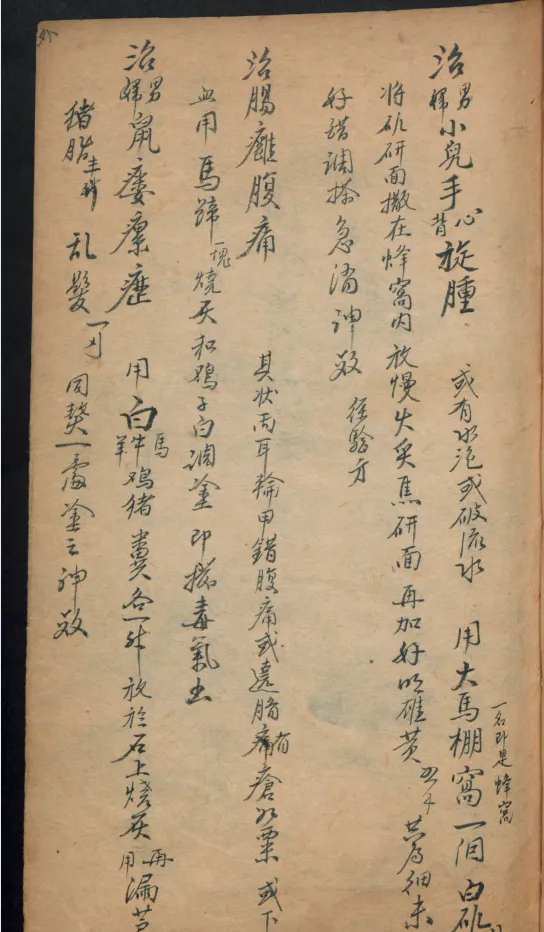 治男婦小兒手心背旋腫 或有水泡或破流水 用大馬棚窩一個 白矾
一名即是蜂窩
將矾研面撒在蜂窩內放慢火炙焦研面再加好明雄黃 共為細末
好醋調搽急消神效 經驗方
治腸癰腹痛 其状兩耳輪甲錯腹痛或遶臍痛有瘡如粟 或下
血用馬蹄一塊燒灰和鸡子白調塗即拔毒氣出
治男婦鼠瘻瘰癧 用白馬牛羊鸡猪糞各一升放於石上燒灰再用漏芦
猪脂 乱髮 同熬一處塗之神效